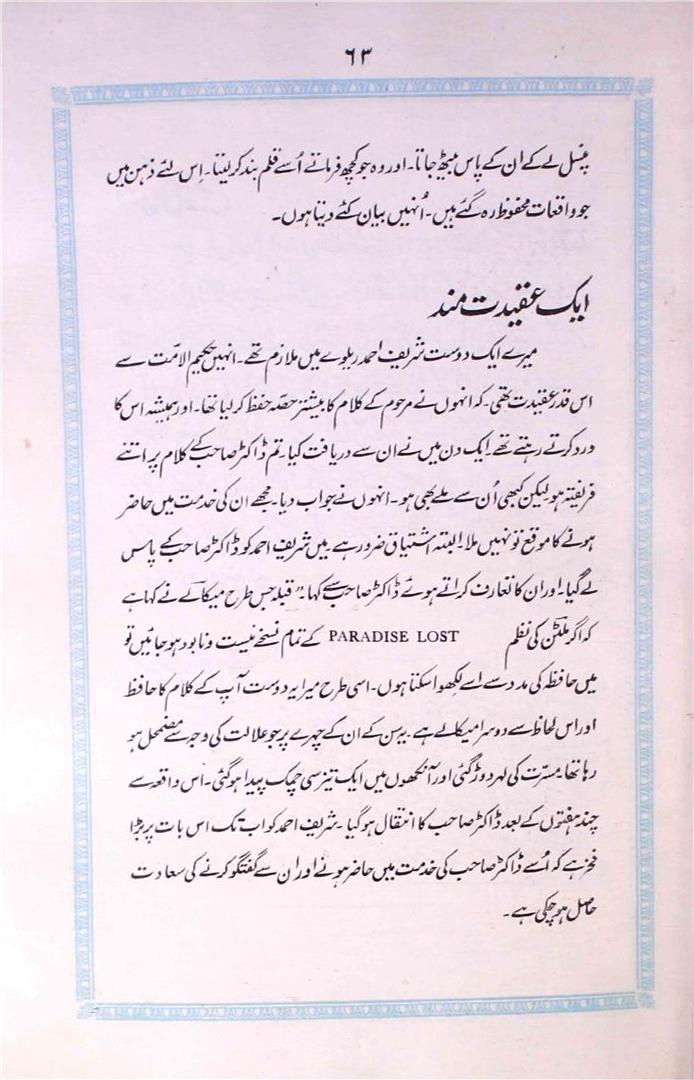 ۶۳
پنسل لے کے ان کے پاس بیٹھ جاتا۔ اور وہ جو کچھ فرماتے اُسے قلم بند کر لیتا۔ اِس لئے ذہن میں
جو واقعات محفوظ رہ گئے ہیں۔ اُنہیں بیان کئے دیتا ہوں۔
ایک عقیدت مند
میرے ایک دوست شریف احمد ریلوے میں ملازم تھے۔ انہیں حکیم الامّت سے
اس قدر عقیدت تھی۔ کہ انہوں نے مرحوم کے کلام کا بیشتر حصّہ حفظ کر لیا تھا۔ اور ہمیشہ اس کا
ورد کرتے رہتے تھے۔ ایک دن میں نے ان سے دریافت کیا۔ تم ڈاکٹر صاحب کے کلام پر اتنے
فریفتہ ہو لیکن کبھی اُن سے ملے بھی ہو۔ انہوں نے جواب دیا۔ مجھے ان کی خدمت میں حاضر
ہونے کا موقع تو نہیں ملا۔ البتہ اشتیاق ضرور ہے۔ میں شریف احمد کو ڈاکٹر صاحب کے پاس
لے گیا۔ اور ان کا تعارف کراتے ہوئے ڈاکٹر صاحب سے کہا۔ "قبلہ جس طرح میکالے نے کہا ہے
کہ اگر ملٹن کی نظم PARADISE LOST کے تمام نسخے نیست و نابود ہو جائیں تو
میں حافظہ کی مدد سے اسے لکھوا سکتا ہوں۔ اسی طرح میرا یہ دوست آپ کے کلام کا حافظ
اور اس لحاظ سے دوسرا میکالے ہے۔ یہ سن کے ان کے چہرے پر جو علالت کی وجہ سے مضمحل ہو
رہا تھا۔ مسرّت کی لہر دوڑ گئی اور آنکھوں میں ایک تیز سی چمک پیدا ہو گئی۔ اس واقعہ سے
چند ہفتوں کے بعد ڈاکٹر صاحب کا انتقال ہو گیا۔ شریف احمد کو اب تک اس بات پر بڑا
فخر ہے کہ اُسے ڈاکٹر صاحب کی خدمت میں حاضر ہونے اور ان سے گفتگو کرنے کی سعادت
حاصل ہو چکی ہے۔